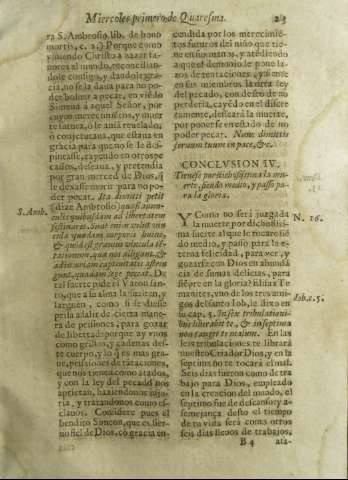 Miercoles primero de Quaresma. 23
ra S. Ambrosio lib. de bono
mortis, c. 2.) Porque como
viniendo Christo a hazer fa-
uores al mundo, reconcilian-
dole consigo, y dandole gra-
cia, no se la daua para no po-
der boluer a pecar, en viêdo
Simeon a aquel Señor, por
cuyos merecimiẽtos, y muer
te futura, o le auia reuelado,
o conjeturaua, que estaua en
gracia para que no se le des-
pintasse, cayendo en otros pe-
cados, deseaua, y pretendia
por gran merced de Dios, q̃
le dexasse morir para no po-
der pecar. Ita dimitti petit
(dize Ambrosio) quasi
quibusdam ad libertatem
festinaret. Sunt enim velut vin
cula quædam corporis huius,
& quod est grauius vincula tẽ-
tationum, quæ nos alligant, &
ad iniuriam captiuitatis astrin
gunt, quadam lege peccati. De
tal suerte pide el Varon san-
to, que a su alma la suelten, y
larguen, como si se diesse
prisa a salir de cierta mane-
ra de prisiones, para gozar
de libertad: porque ay vnos
como grillos, y cadenas des-
te cuerpo, y lo q̃ es mas gra-
ue, prisiones de tẽtaciones,
que nos tienen como atados,
y con la ley del pecado nos
aprietan, haziendonos inju-
ria, y tratandonos como es-
clauos. Considere pues el
bendito Simeon, que es sier-
uo fiel de Dios, cõ gracia en-
S. Amb.
cendida por los merecimiẽ-
tos futuros del niño que tie-
ne en sus manos, y atẽdiendo
aquel demonio le pone la-
zos de tentaciones, y siente
en sus miembros la otra ley
del pecado, con deseo de no
perderla, cayẽdo en el discre-
tamente, desearà la muerte,
por ponerse en estado de no
poder pecar. Nunc dimittis
seruum tuum in pace, &c.
CONCLVSION IV.
Tienese por dichosissima la mu-
erte, siendo medio, y passo pa-
ra la gloria.
Y Como no serà juzgada
la muerte por dichosissi-
ma suerte al que le tocare siẽ
do medio, y passo para la e-
terna felicidad, para ver, y
gozarse con Dios en abunda
cia de sumas delicias, para
siẽpre en la gloria? Elifaz Te
manites, vno de los tres ami-
gos del santo Iob, le dixo en
su cap. 5. In sex tribulationi-
bus liberabit te, & in septima
non tanget te malum. En las
seis tribulaciones te librarà
nuestro Criador Dios, y en la
septima no te tocarà el mal.
Seis dias fueron como de tra
bajo para Dios, empleado
en la creacion del mundo, el
septimo fue de descanso: y a-
semejança desto el tiempo
de tu vida serà como otros
seis dias llenos de trabajos,
N. 16.
Iob. c. 5.
B 4 ata-